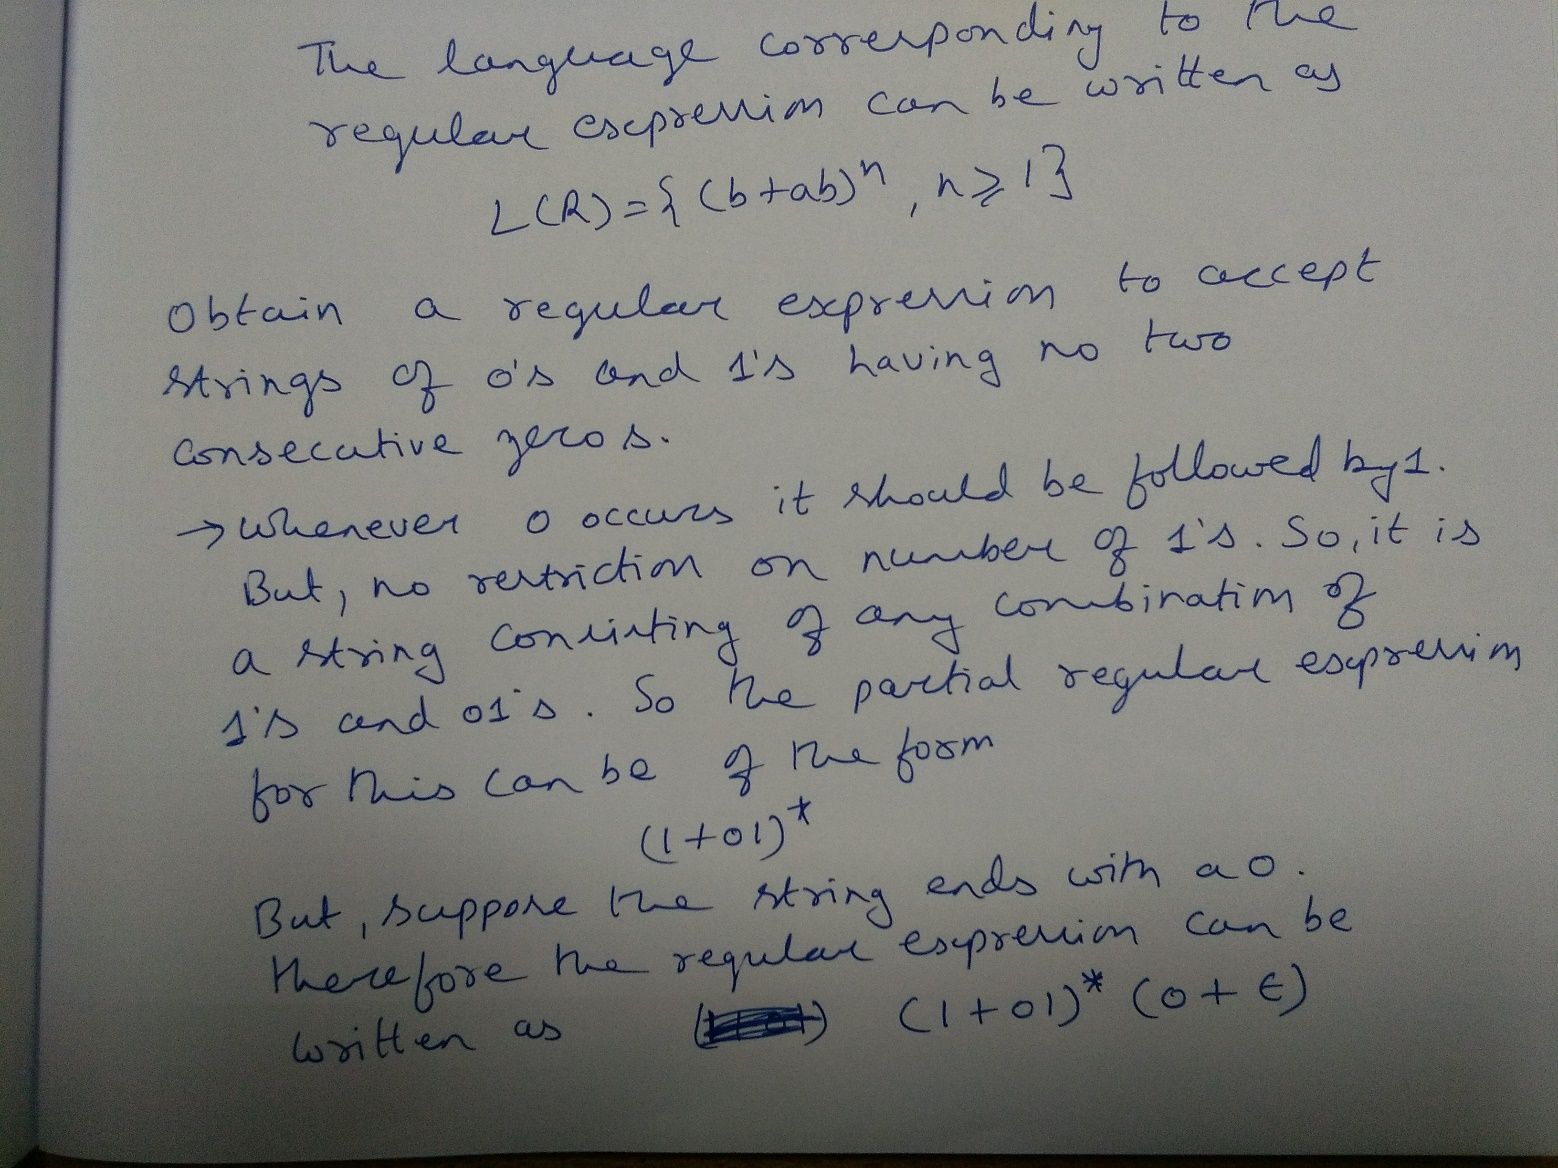 The language corresponding to the
regular expression can be written as
L(R)={(b+ab)ⁿ, n≥1}
Obtain a regular expression to accept
strings of 0's and 1's having no two
consecutive zeros.
→ Whenever 0 occurs it should be followed by 1.
But, no restriction on number of 1's. So, it is
a string consisting of any combination of
1's and 01's. So the partial regular expression
for this can be of the form
(1+01)*
But, suppose the string ends with a 0.
therefore the regular expression can be
written as (1+01)* (0+ϵ)